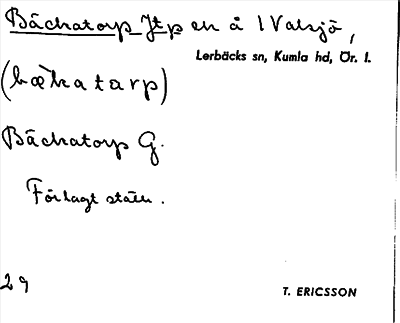 Bäckatorp Jtp en å I Valsjö,
Lerbäcks sn, Kumla hd, Ör. l.
(bækatarp)
Bäckatorp G.
Förlagt ställe.
29
T. ERICSSON